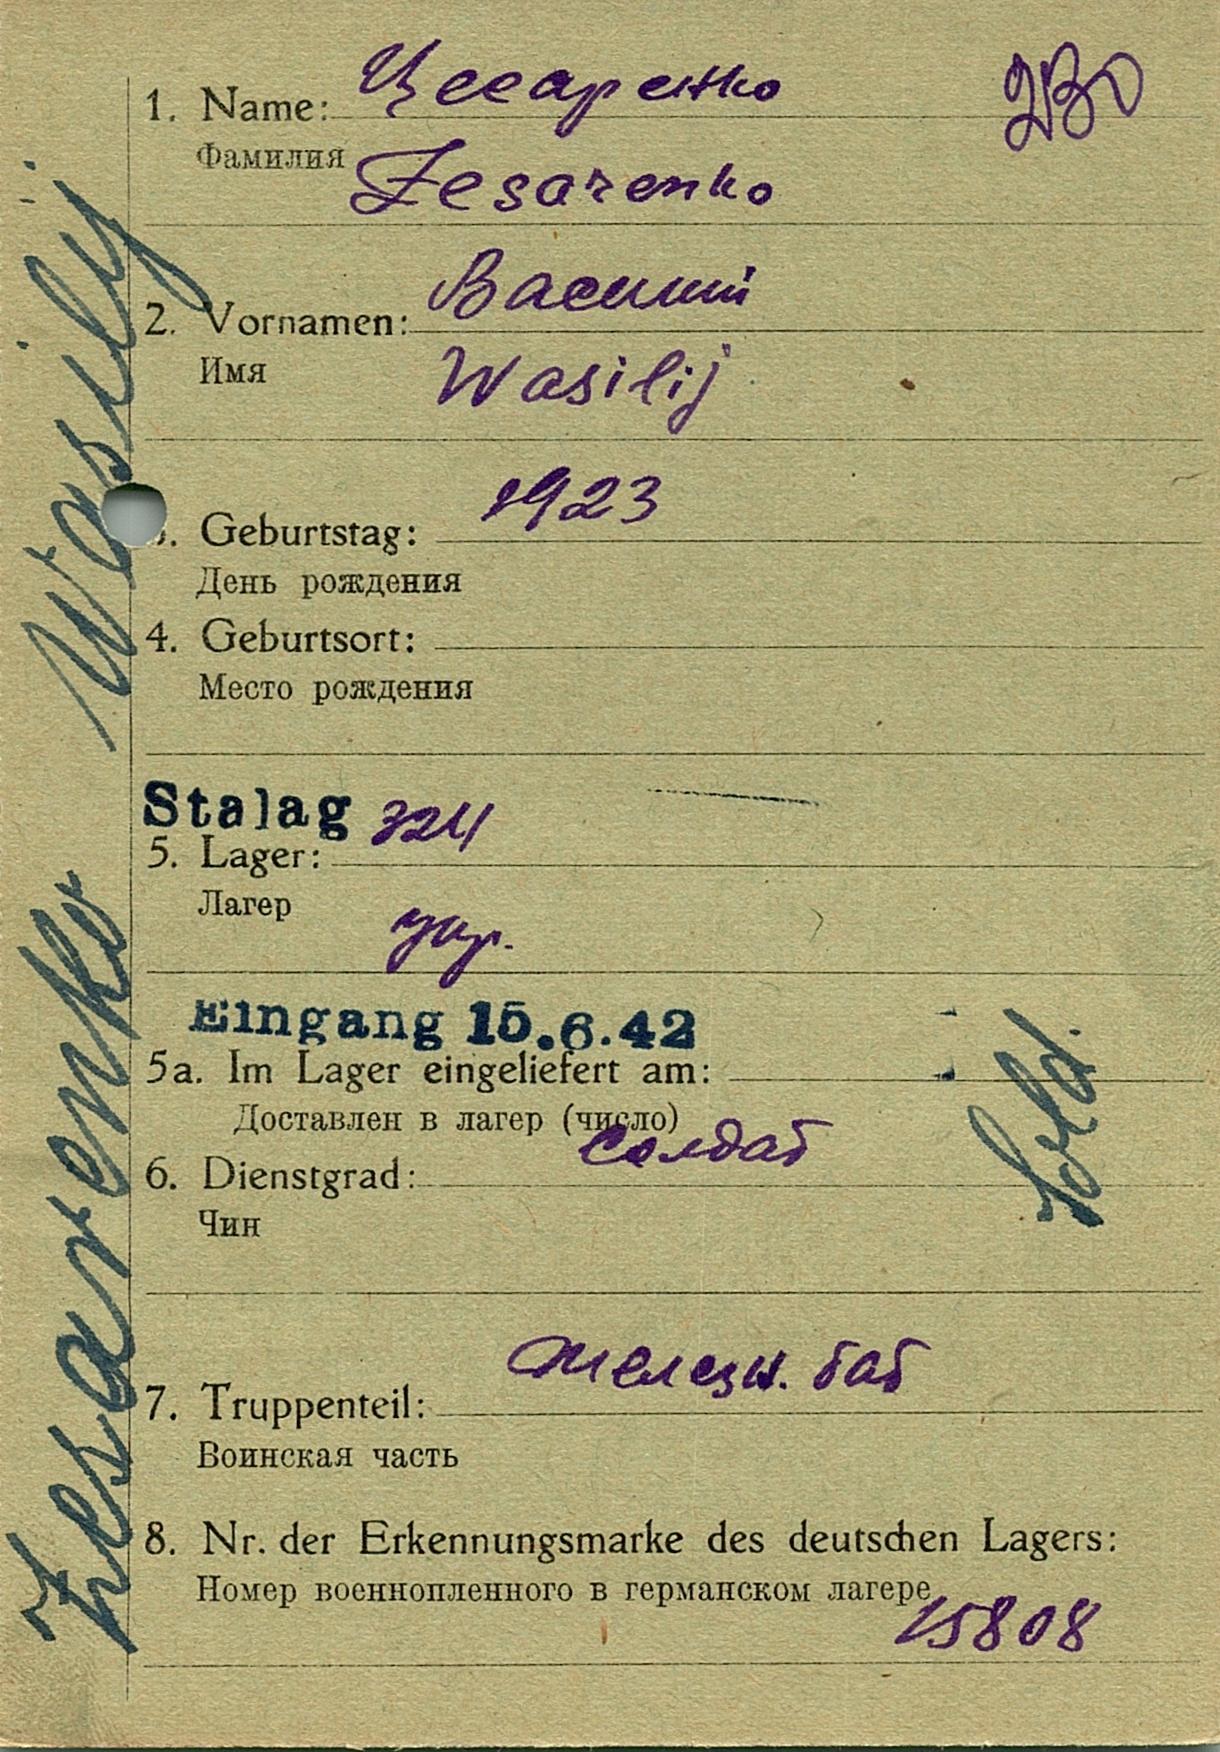 1. Name: Цесаренко
Фамилия Zesarenko
2. Vornamen: Василий
Имя Wasilij
1923
Geburtstag:
День рождения
4. Geburtsort:
Место рождения
Stalag 324
5. Lager:
Лагер
укр.
Eingang 15.6.42
5a. Im Lager eingeliefert am:
Доставлен в лагер (число)
солдат
6. Dienstgrad:
Чин
Sold.
железн. бат
7. Truppenteil:
Воинская часть
8. Nr. der Erkennungsmarke des deutschen Lagers:
Номер военнопленного в германском лагере
15808
Zesarenko Wasilij